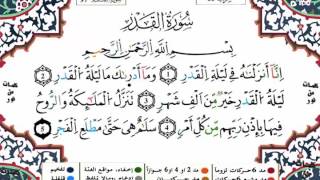 سُورَةُ القَدْرِ
بِسْمِ اللَّهِ الرَّحْمَٰنِ الرَّحِيمِ
إِنَّا أَنزَلْنَٰهُ فِي لَيْلَةِ الْقَدْرِ ١ وَمَا أَدْرَىٰكَ مَا لَيْلَةُ الْقَدْرِ ٢
لَيْلَةُ الْقَدْرِ خَيْرٌ مِّنْ أَلْفِ شَهْرٍ ٣ تَنَزَّلُ الْمَلَٰٓئِكَةُ وَالرُّوحُ
فِيهَا بِإِذْنِ رَبِّهِم مِّن كُلِّ أَمْرٍ ٤ سَلَٰمٌ هِيَ حَتَّىٰ مَطْلَعِ الْفَجْرِ ٥
مد ٦ حركات لزوما
مد ٢ او ٤ او ٦ جوازا